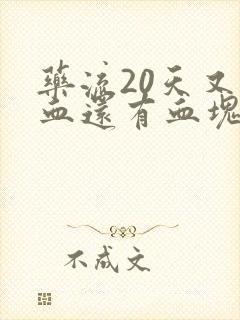 藥流20天又
血還有血塊
不成文